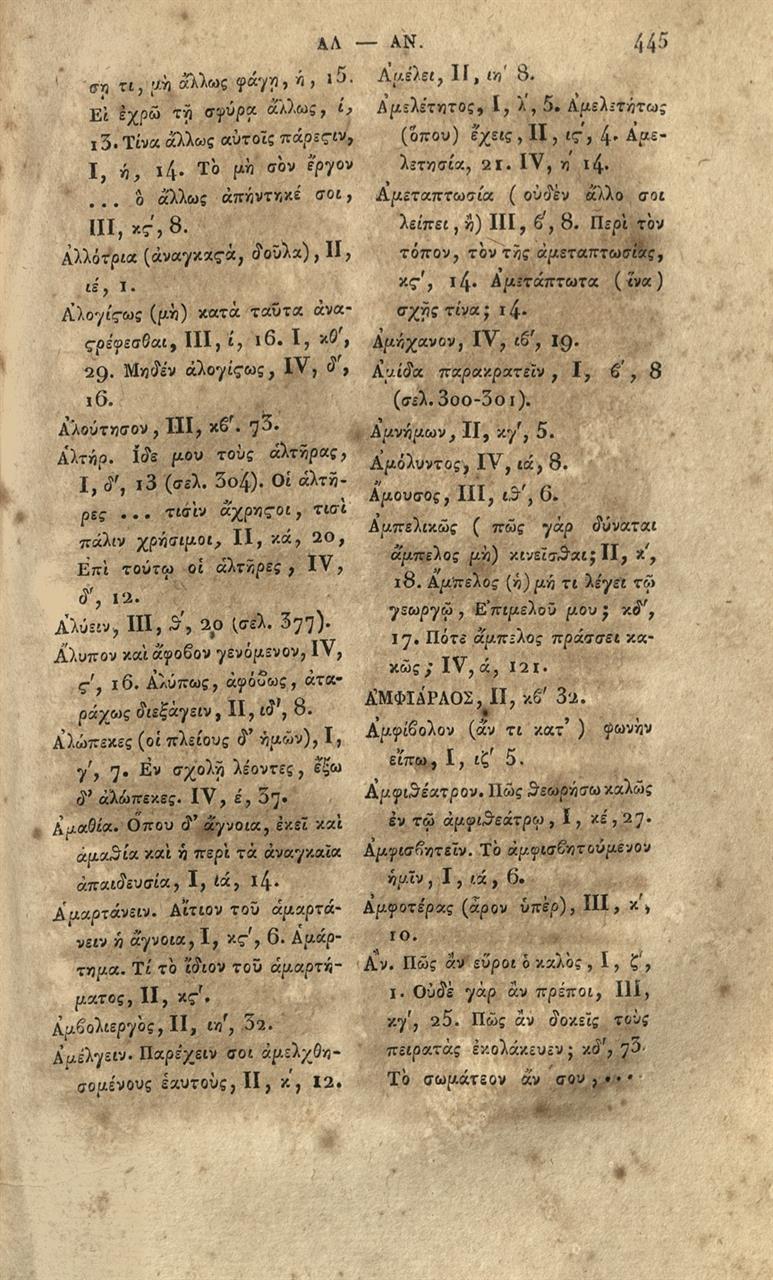 ΑΛ — ΑΝ. 445
ση τι, μὴ ἄλλως φάγῃ, ή, 15.
Εἰ ἐχρῶ τῇ σφύρᾳ ἄλλως, ί,
13. Τίνα ἄλλως αὐτοῖς πάρεϛιν,
I, ή, 14. Τὸ μὴ σὸν ἔργον
... ὃ ἄλλως ἀπήντηκέ σοι,
III, κϛ', 8.
Ἀλλότρια (ἀναγκαϛὰ, δοῦλα), II,
ιέ, 1.
Ἀλογίϛως (μὴ) κατὰ ταῦτα ἀνα-
ϛρέφεσθαι, III, ί, 16. I, κθ',
29. Μηδέν ἀλογίϛως, IV, δ',
16.
Ἀλούτησον, III, κϐ'. 73.
Ἁλτήρ. Ἴδε μου τοὺς ἁλτῆρας,
I, δ', 13 (σελ. 304). Οἱ ἁλτῆ-
ρες ... τισὶν ἄχρηϛοι, τισὶ
πάλιν χρήσιμοι, II, κά, 20,
Ἐπὶ τούτῳ οἱ ἁλτῆρες, IV,
δ', 12.
Ἀλύειν, III, ϑ', 20 (σελ. 377).
Ἄλυπον καὶ ἄφοϐον γενόμενον, IV,
ϛ', 16. Ἀλύπως, ἀφόϐως, ἀτα-
ράχως διεξάγειν, II, ιδ', 8.
Ἀλώπεκες (οἱ πλείους δ' ἡμῶν), I,
γ', 7. Ἐν σχολῇ λέοντες, ἔξω
δ' ἀλώπεκες. IV, έ, 37.
Ἀμαθία. Ὅπου δ' ἄγνοια, ἐκεῖ καὶ
ἀμαϑία καὶ ἡ περὶ τὰ ἀναγκαῖα
ἀπαιδευσία, I, ιά, 14.
Ἁμαρτάνειν. Αἴτιον τοῦ ἁμαρτά-
νειν ἡ ἄγνοια, I, κϛ', 6. Ἁμάρ-
τημα. Τί τὸ ἴδιον τοῦ ἁμαρτή-
ματος, II, κϛ'.
Ἀμϐολιεργὸς, II, ιη', 32.
Ἀμέλγειν. Παρέχειν σοι ἀμελχθη-
σομένους ἑαυτοὺς, II, κ', 12.
Ἀμέλει, II, ιη' 8.
Ἀμελέτητος, I, λ', 5. Ἀμελετήτως
(ὅπου) ἔχεις, II, ιϛ', 4. Ἀμε-
λετησία, 21. IV, η' 14.
Ἀμεταπτωσία (οὐδὲν ἄλλο σοι
λείπει, ἢ) III, ϐ', 8. Περὶ τὸν
τόπον, τὸν τῆς ἀμεταπτωσίας,
κϛ', 14. Ἀμετάπτωτα (ἵνα)
σχῇς τίνα; 14.
Ἀμήχανον, IV, ιϐ', 19.
Ἀμίδα παρακρατεῖν, I, ϐ', 8
(σελ. 300-301).
Ἀμνήμων, II, κγ', 5.
Ἀμόλυντος, IV, ιά, 8.
Ἄμουσος, III, ιϑ', 6.
Ἀμπελικῶς (πῶς γὰρ δύναται
ἄμπελος μὴ) κινεῖσϑαι; II, κ',
18. Ἄμπελος (ἡ) μή τι λέγει τῷ
γεωργῷ, Ἐπιμελοῦ μου; κδ',
17. Πότε ἄμπελος πράσσει κα-
κῶς; IV, ά, 121.
ἈΜΦΙΆΡΑΟΣ, II, κϐ' 32.
Ἀμφίϐολον (ἄν τι κατ') φωνὴν
εἴπω, I, ιζ' 5.
Ἀμφιϑέατρον. Πῶς ϑεωρήσω καλῶς
ἐν τῷ ἀμφιϑεάτρῳ, I, κέ, 27.
Ἀμφισϐητεῖν. Τὸ ἀμφισϐητούμενον
ἡμῖν, I, ιά, 6.
Ἀμφοτέρας (ἆρον ὑπὲρ), III, κ',
10.
Ἄν. Πῶς ἂν εὕροι ὁ καλὸς, I, ζ',
1. Οὐδὲ γὰρ ἂν πρέποι, III,
κγ', 25. Πῶς ἂν δοκεῖς τοὺς
πειρατὰς ἐκολάκευεν; κδ', 73.
Τὸ σωμάτεον ἄν σου, ...